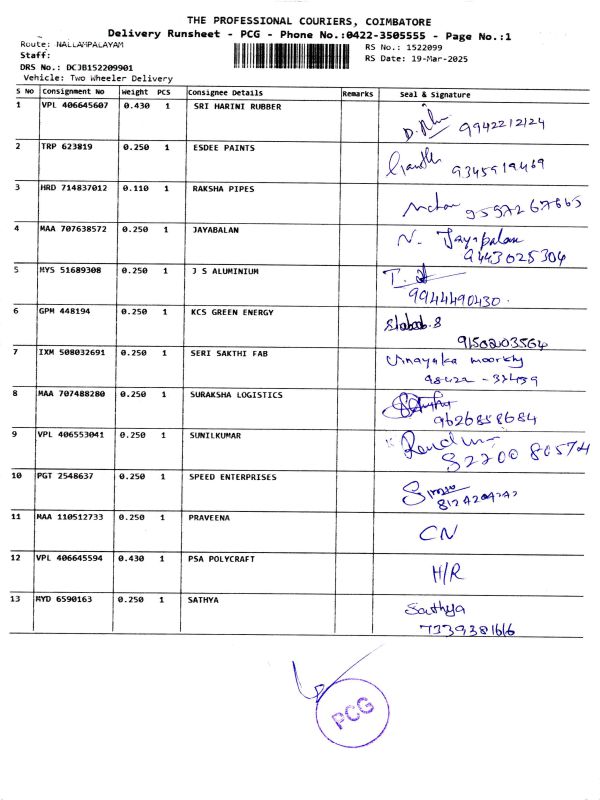 THE PROFESSIONAL COURIERS, COIMBATORE
Delivery Runsheet - PCG - Phone No.:0422-3505555 - Page No.:1
Route: NALLAMPALAYAM RS No.: 1522099
Staff: RS Date: 19-Mar-2025
DRS No.: DCJB152209901
Vehicle: Two Wheeler Delivery
S No Consignment No Weight PCS Consignee Details Remarks Seal & Signature
1 VPL 406645607 0.430 1 SRI HARINI RUBBER
9942212124
2 TRP 623819 0.250 1 ESDEE PAINTS
9345919469
3 HRD 714837012 0.110 1 RAKSHA PIPES
4 MAA 707638572 0.250 1 JAYABALAN N. Jayabalan
9443025304
5 MYS 51689308 0.250 1 J S ALUMINIUM
9944490430.
6 GPM 448194 0.250 1 KCS GREEN ENERGY
9150203564
7 IXM 508032691 0.250 1 SERI SAKTHI FAB Vinayaka moorthy
8 MAA 707488280 0.250 1 SURAKSHA LOGISTICS
9626858684
9 VPL 406553041 0.250 1 SUNILKUMAR
10 PGT 2548637 0.250 1 SPEED ENTERPRISES
11 MAA 110512733 0.250 1 PRAVEENA CN
12 VPL 406645594 0.430 1 PSA POLYCRAFT H/R
13 MYD 6590163 0.250 1 SATHYA Sathya
7339381616
PCG